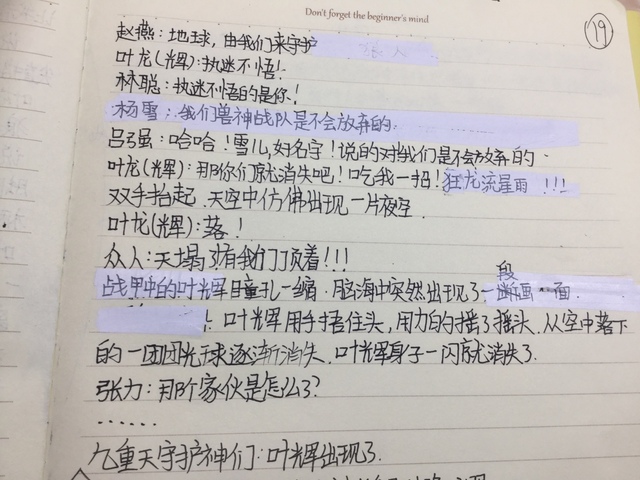 Don't forget the beginner's mind
19
赵燕:地球,由我们来守护
叶龙(辉):执迷不悟!
林聪:执迷不悟的是你!
杨雪:我们兽神战队是不会放弃的.
吕子强:哈哈!雪儿,好名字!说的对我们是不会放弃的.
叶龙(辉):那你们就消失吧!吃我一招!狂龙流星雨!!!
双手抬起.天空中仿佛出现一片夜空.
叶龙(辉):落!
众人:天塌了有我们顶着!!!
战甲中的叶辉瞳孔一缩.脑海中突然出现了一段画面.
叶辉用手捂住头,用力的摇了摇头.从空中落下
的一团团光球逐渐消失.叶辉身子一闪就消失了.
张力:那个家伙是怎么了?
......
九重天守护神们:叶辉出现了.